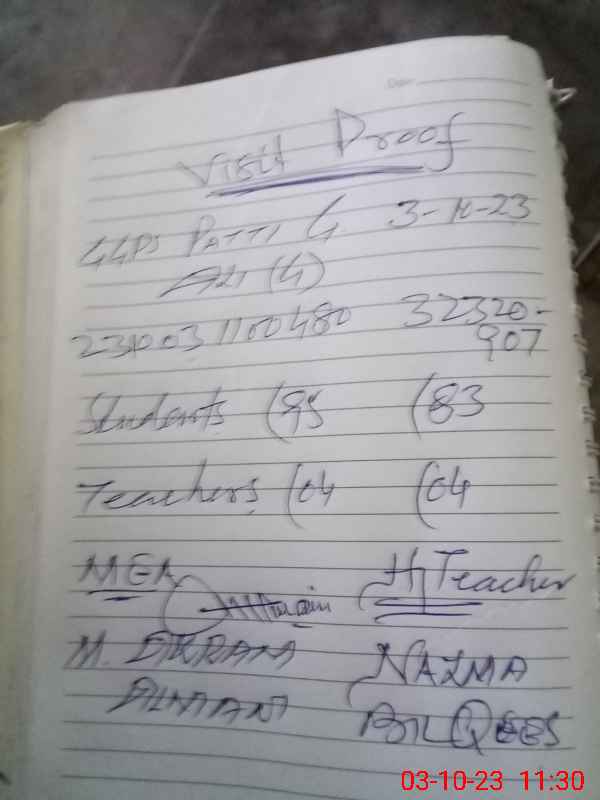 Date:
Visit Proof
GGPS PATTI 3-10-23
ALI (G)
32320-
907
Students (95 (83
Teachers (04 (04
MEA H/Teacher
M. IKRAM NAZMA
BILQEES
03-10-23 11:30